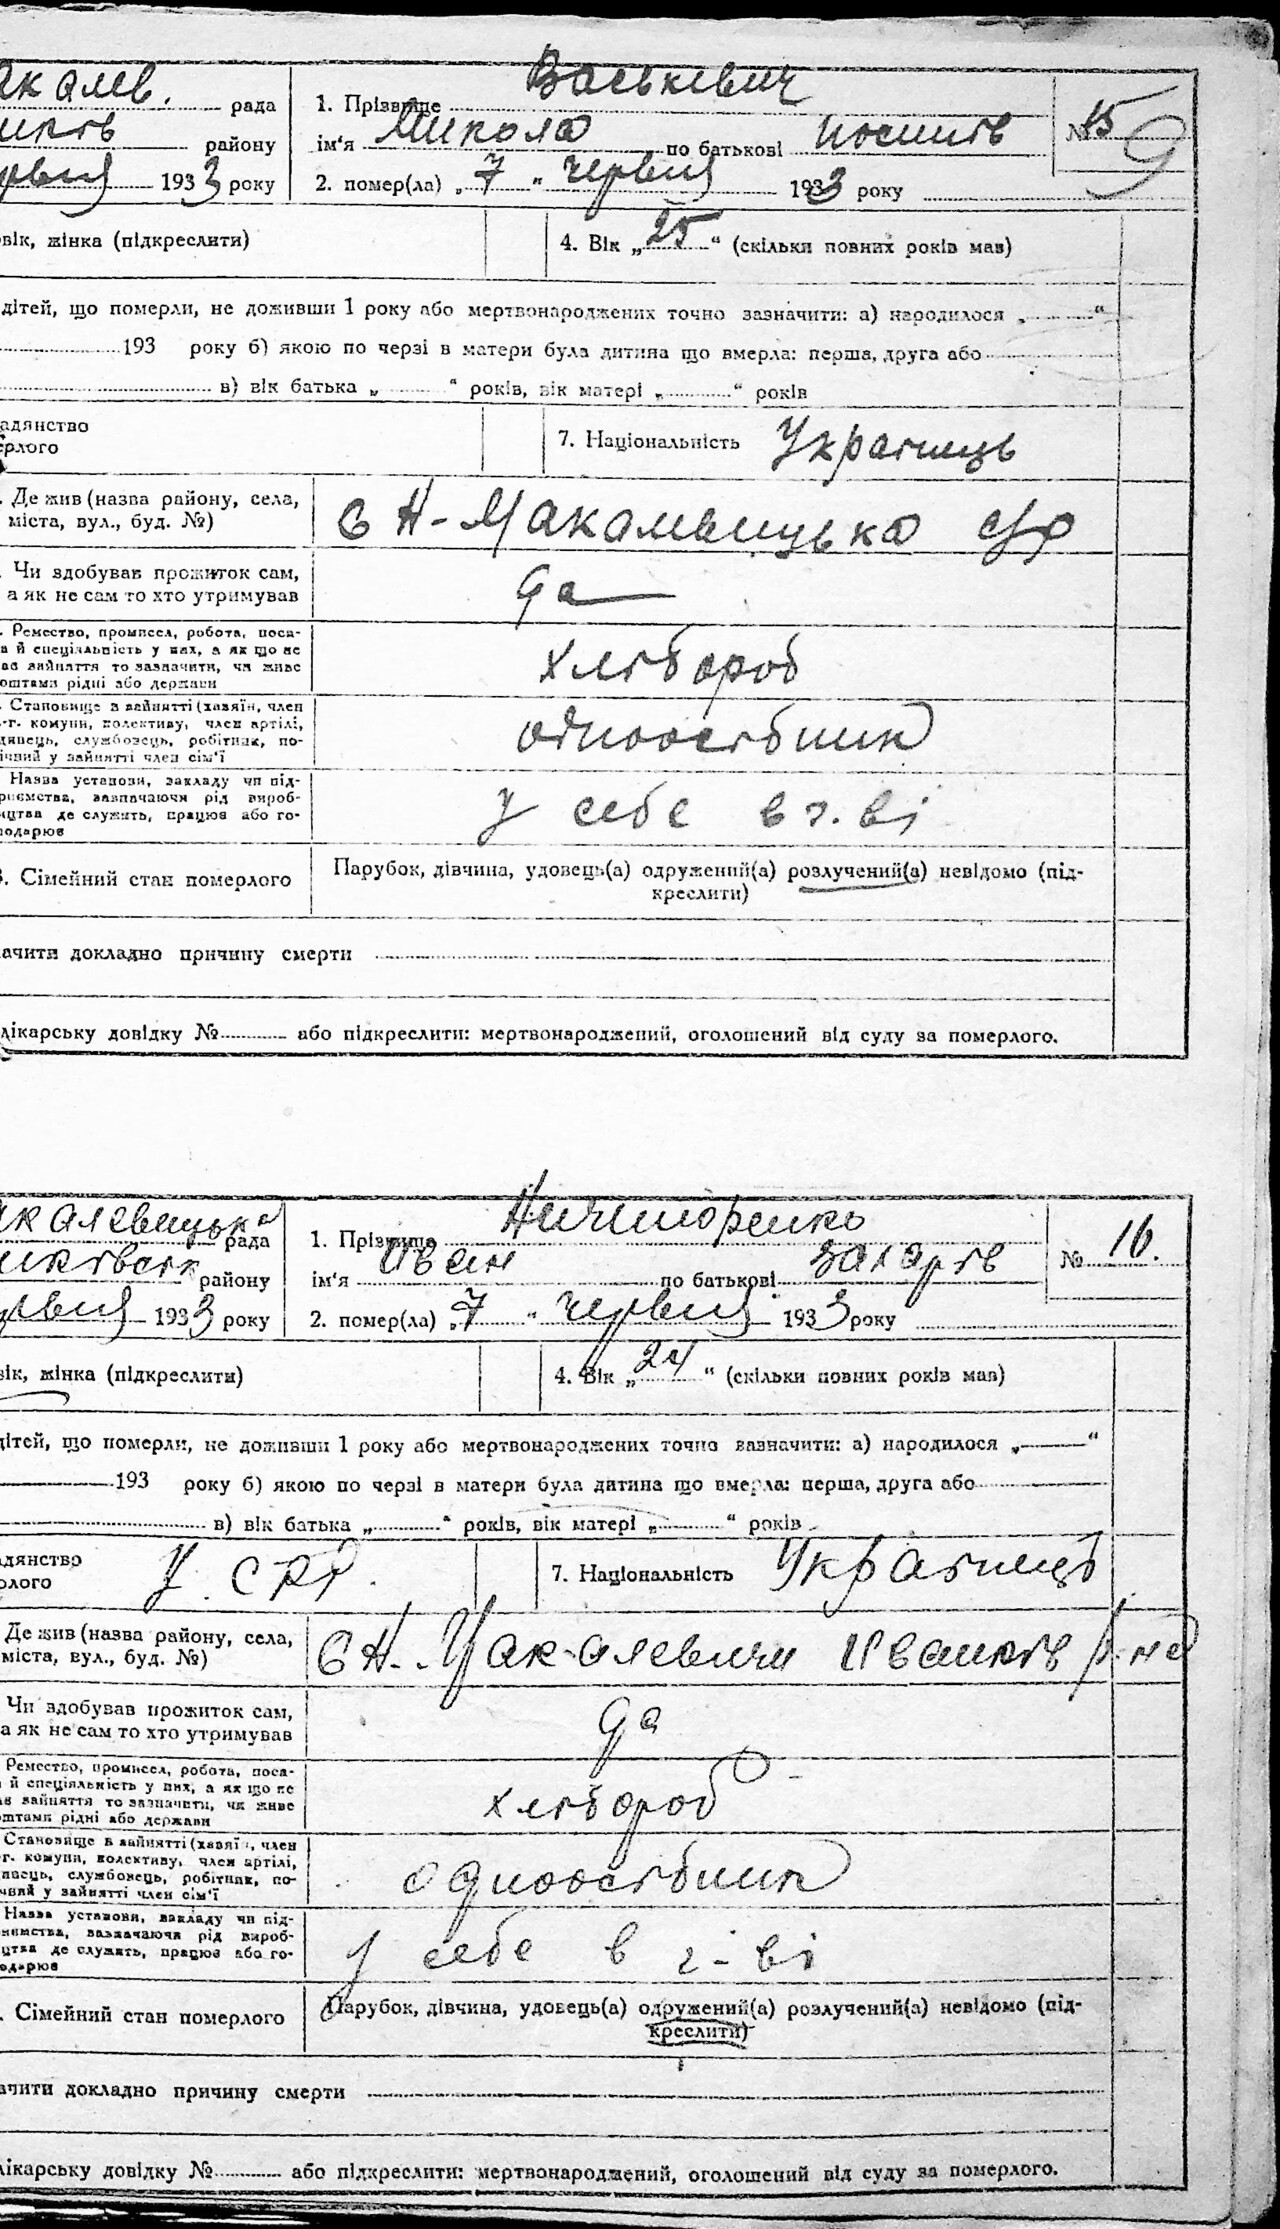 Васькевич
акалев. рада 1. Прізвище
районy ім'я Микола по батькові Йосипів № 15 9
червня 1933 року 2. помер(ла) „7“ червня 1933 року
вік, жінка (підкреслити) 4. Вік „25“ (скільки повних років мав)
дітей, що померли, не доживши 1 року або мертвонароджених точно зазначити: а) народилося „ “
193 року б) якою по черзі в матери була дитина що вмерла: перша, друга або
в) вік батька „ “ років, вік матері „ “ років
адянство
ерлого 7. Національність Українець
. Де жив (назва району, села,
міста, вул., буд. №) с Н-Макалевицька с/р
. Чи здобував прожиток сам,
а як не сам то хто утримував да
. Ремество, промисел, робота, поса-
а й спеціяльність у них, а як що не
ав зайняття то зазначити, чи живе
оштами рідні або держави хлібороб
. Становище в зайнятті (хазяїн, член
-г. комуни, колективу, член артілі,
динець, службовець, робітник, по-
ічний у зайнятті член сім'ї одноосібник
Назва установи, закладу чи під-
риємства, зазначаючи рід вироб-
ицтва де служить, працює або го-
подарює у себе в г. ві
3. Сімейний стан померлого Парубок, дівчина, удовець(а) одружений(а) розлучений(а) невідомо (під-
креслити)
ачити докладно причину смерти
лікарську довідку № або підкреслити: мертвонароджений, оголошений від суду за померлого.
Ничипоренко
акалевицька рада 1. Прізвище
району ім'я Іван по батькові Захарів № 16.
червня 1933 року 2. помер(ла) „7“ червня 1933 року
вік, жінка (підкреслити) 4. Вік „24“ (скільки повних років мав)
дітей, що померли, не доживши 1 року або мертвонароджених точно зазначити: а) народилося „ “
193 року б) якою по черзі в матери була дитина що вмерла: перша, друга або
в) вік батька „ “ років, вік матері „ “ років
адянство
рлого У. СРР. 7. Національність Українець
Де жив (назва району, села,
міста, вул., буд. №) с Н. Макалевичи Іванків р-на
Чи здобував прожиток сам,
а як не сам то хто утримував да
Ремество, промисел, робота, поса-
й спеціяльність у них, а як що не
ав зайняття то зазначити, чи живе
оштами рідні або держави хлібороб
Становище в зайнятті (хазяїн, член
г. комуни, колективу, член артілі,
инець, службовець, робітник, по-
чний у зайнятті член сім'ї одноосібник
Назва установи, закладу чи під-
риємства, зазначаючи рід вироб-
ицтва де служить, працює або го-
одарює у себе в г-ві
. Сімейний стан померлого Парубок, дівчина, удовець(а) одружений(а) розлучений(а) невідомо (під-
креслити)
ачити докладно причину смерти
лікарську довідку № або підкреслити: мертвонароджений, оголошений від суду за померлого.